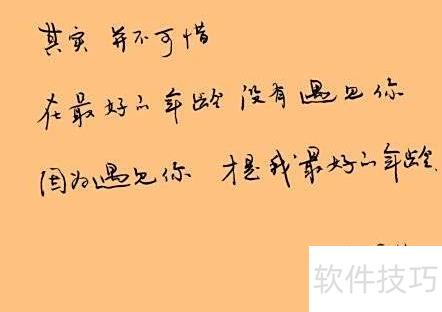 其实 并不可惜
在最好的年龄 没有遇见你
因为遇见你 才是我最好的年龄
软件技巧